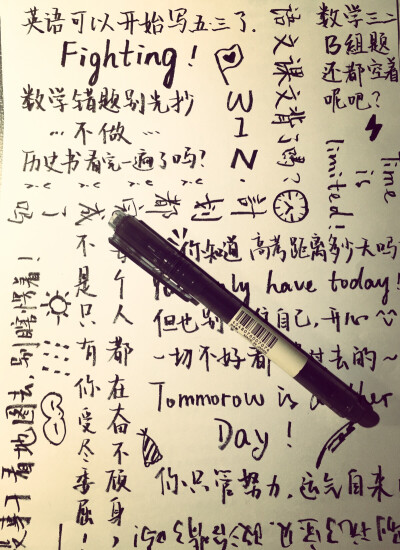 英语可以开始写五·三了.
Fighting!
数学错题别先抄
…不做…
历史书看完一遍了吗?
WIN.
语文课文背了吗?
数学三
B组题
还都空着
呢吧?
Time
is
limited!
計划都完成了吗
你知道高考距离多少天吗
have today!
但也别
自己,开心
一切不好都
过去的~
Tommorow is
Day!
你只管努力,运气自来
个人都在奋不顾身
不是只有你受尽委屈!
看地图去,别瞎愣着!